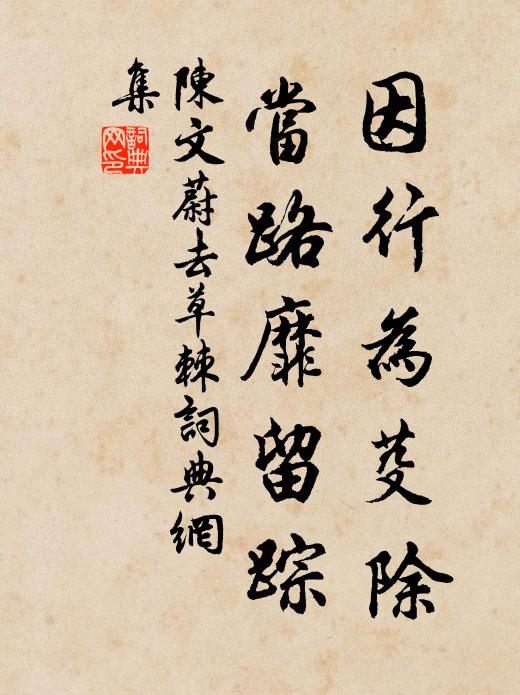 因行為芟除
當路靡留踪
陳文蔚去草棘詞典網
集
詞典
网印